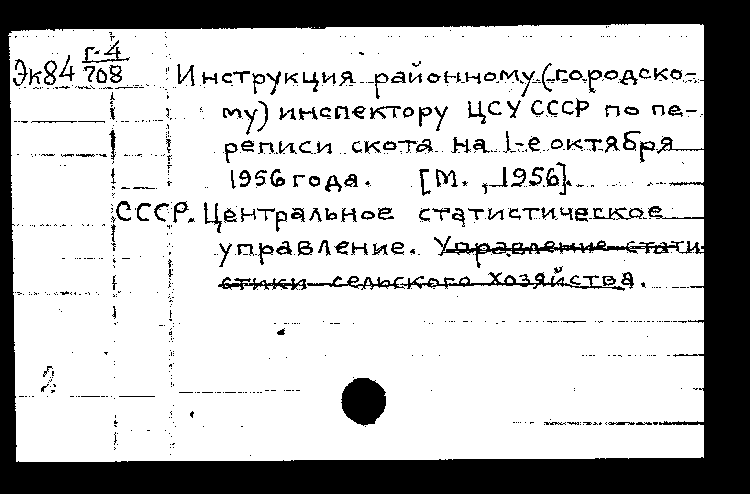 Эк84 г-4/708
Инструкция районному (городско-
му) инспектору ЦСУ СССР по пе-
реписи скота на 1-е октября
1956 года. [М., 1956].
СССР. Центральное статистическое
управление. Управление стати
стики сельского хозяйства.
2